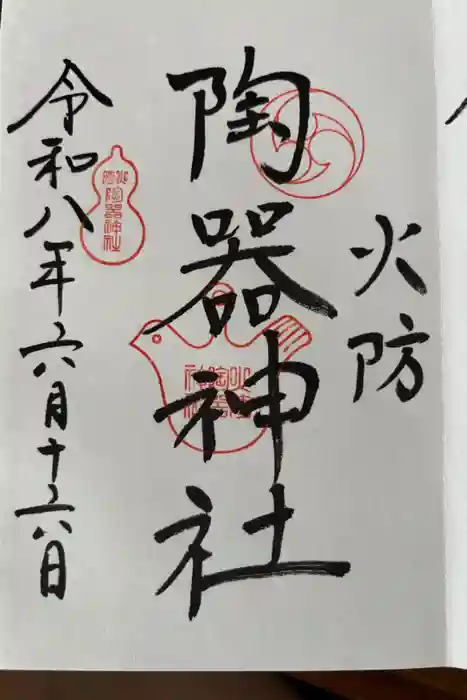 火防
陶器神社
令和八年六月十六日
陶器神社